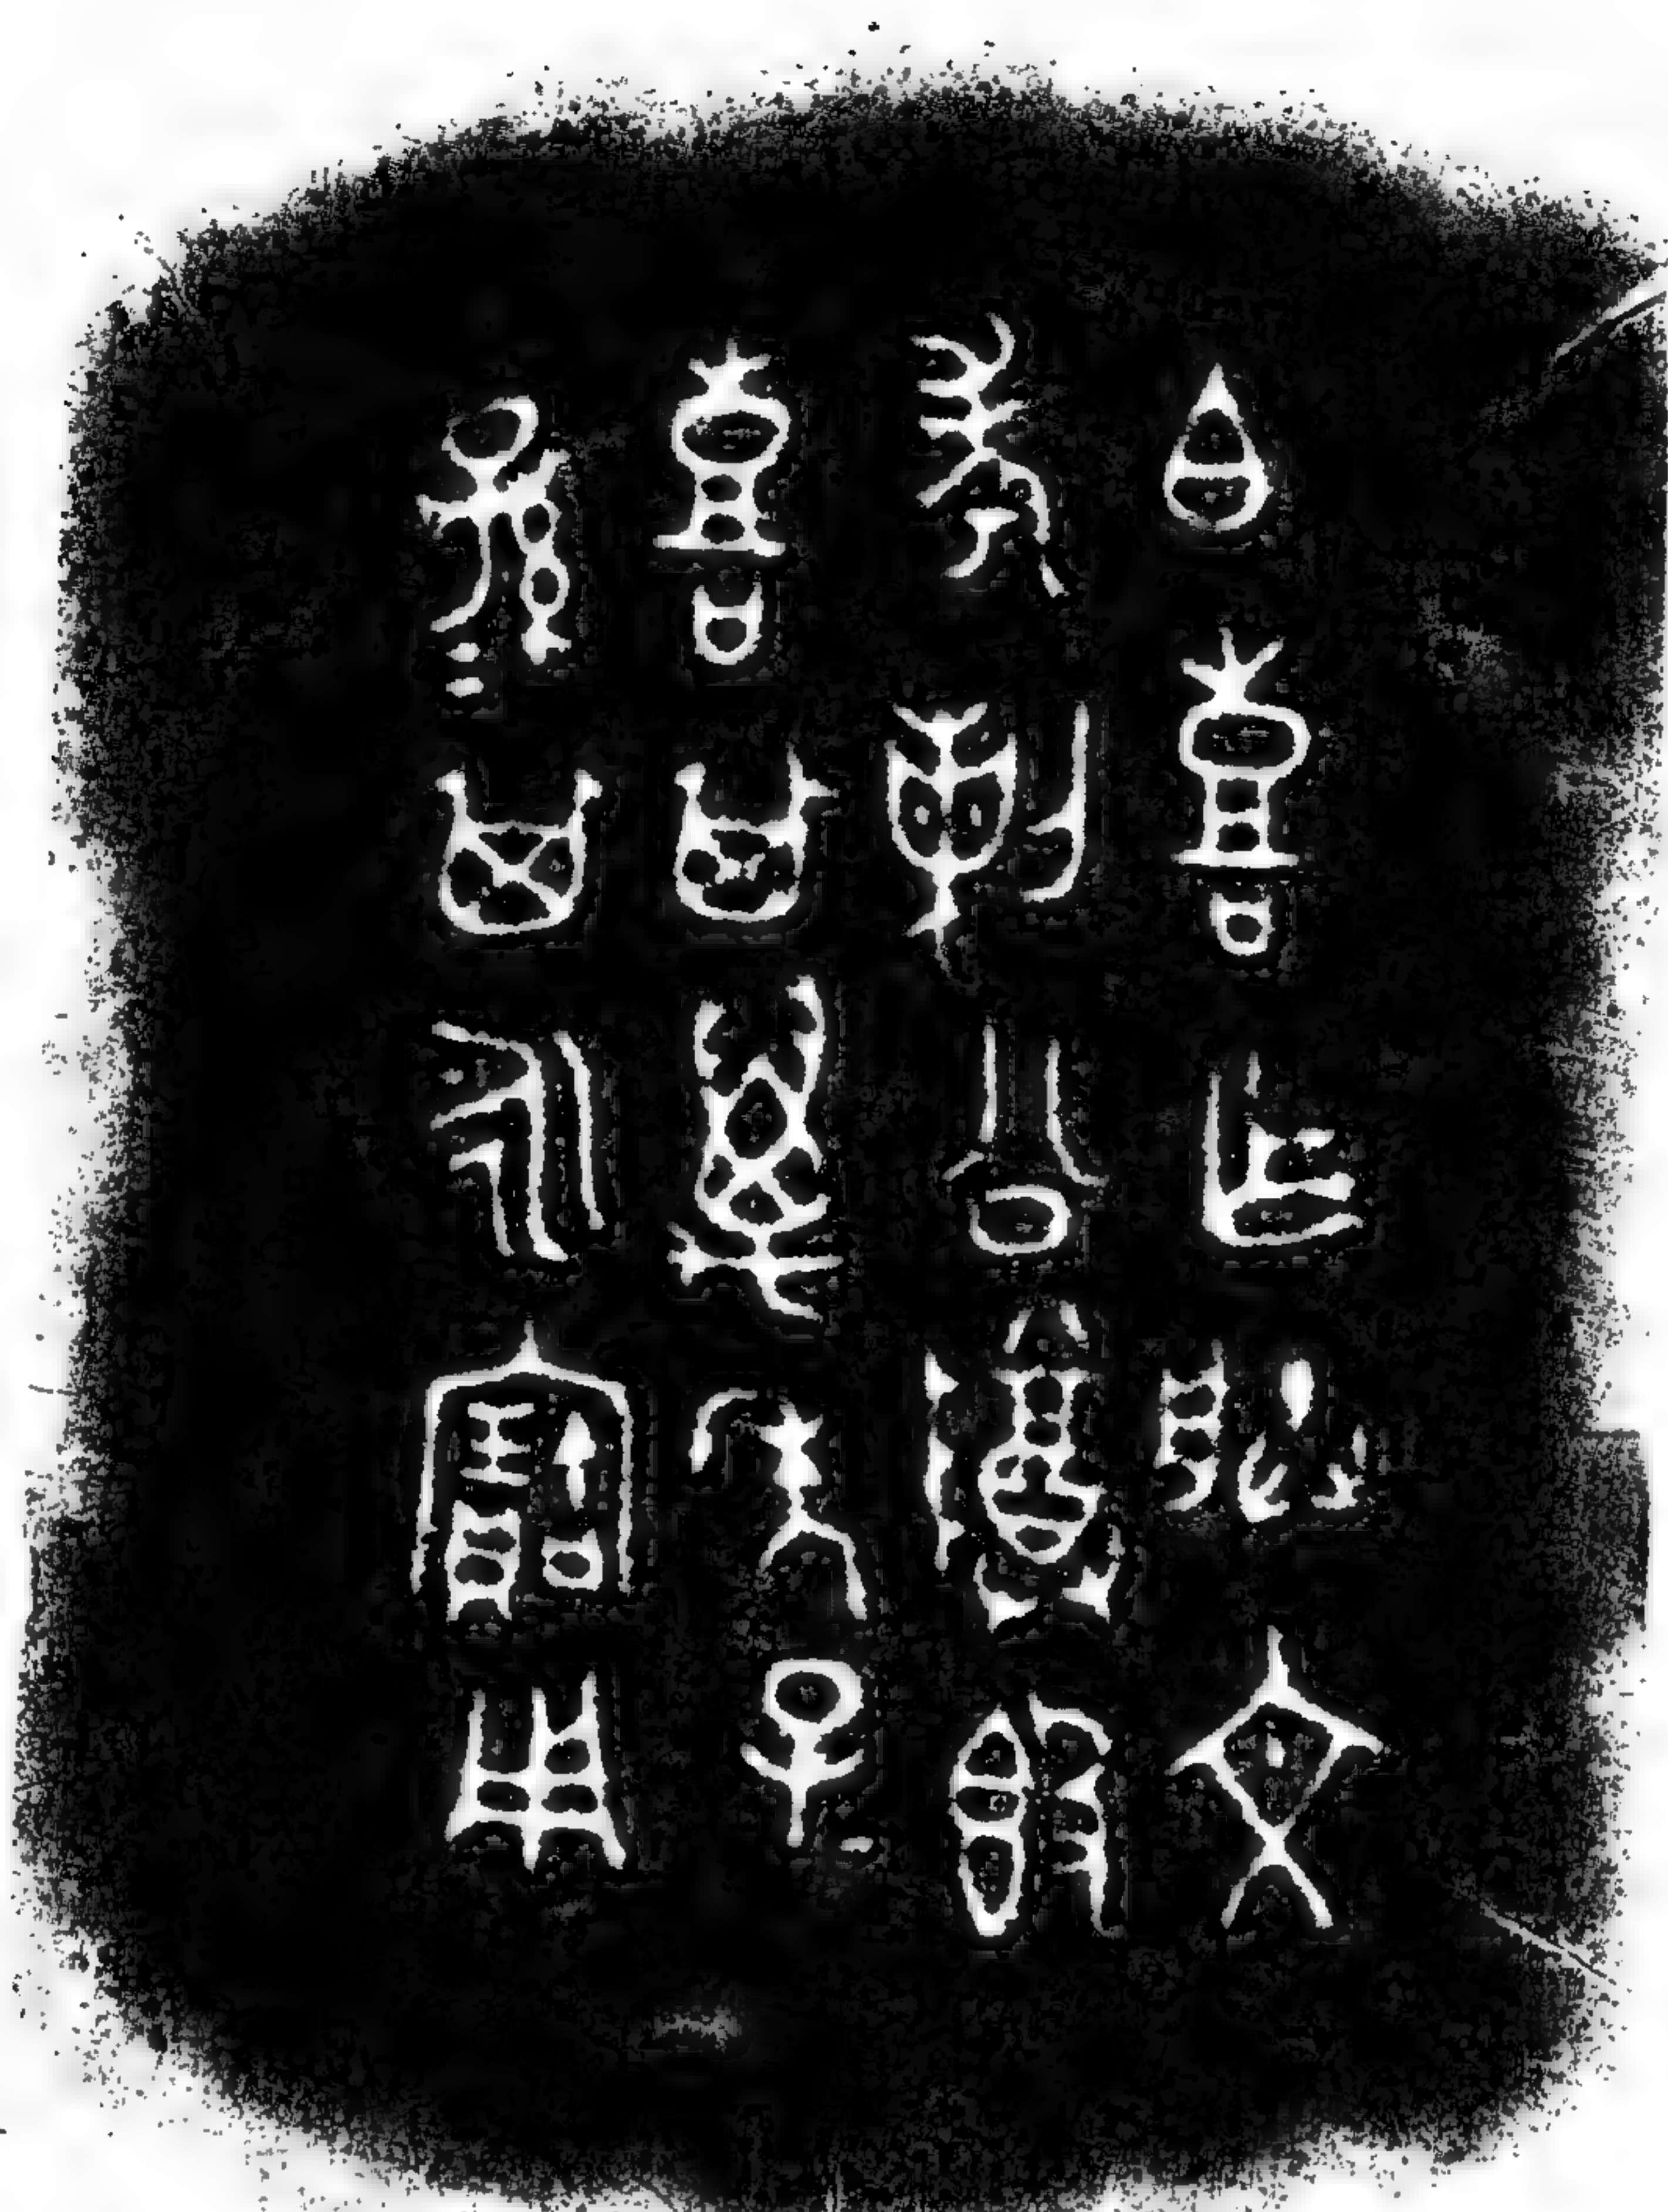 白喜乍朕文
考剌公尊簋
喜其萬年子=
孫=其永寶用